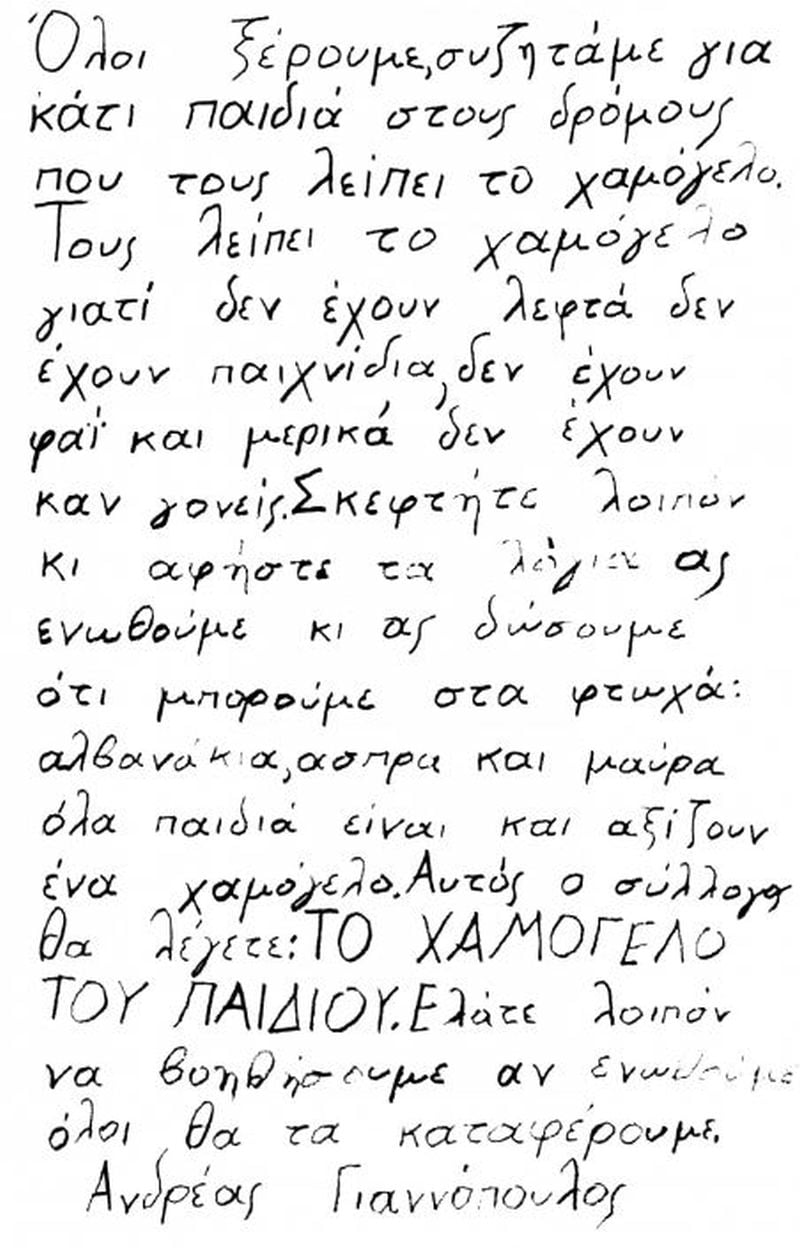 Όλοι ξέρουμε,συζητάμε για
κάτι παιδιά στους δρόμους
που τους λείπει το χαμόγελο.
Τους λείπει το χαμόγελο
γιατί δεν έχουν λεφτά δεν
έχουν παιχνίδια,δεν έχουν
φαϊ και μερικά δεν έχουν
καν γονείς.Σκεφτήτε λοιπόν
κι αφήστε τα λόγια ας
ενωθούμε κι ας δώσουμε
ότι μπορούμε στα φτωχά:
αλβανάκια,ασπρα και μαύρα
όλα παιδιά είναι και αξίζουν
ένα χαμόγελο.Αυτός ο σύλλογος
θα λέγετε:ΤΟ ΧΑΜΟΓΕΛΟ
ΤΟΥ ΠΑΙΔΙΟΥ.Ελάτε λοιπόν
να βοηθήσουμε αν ενωθούμε
όλοι θα τα καταφέρουμε.
Ανδρέας Γιαννόπουλος